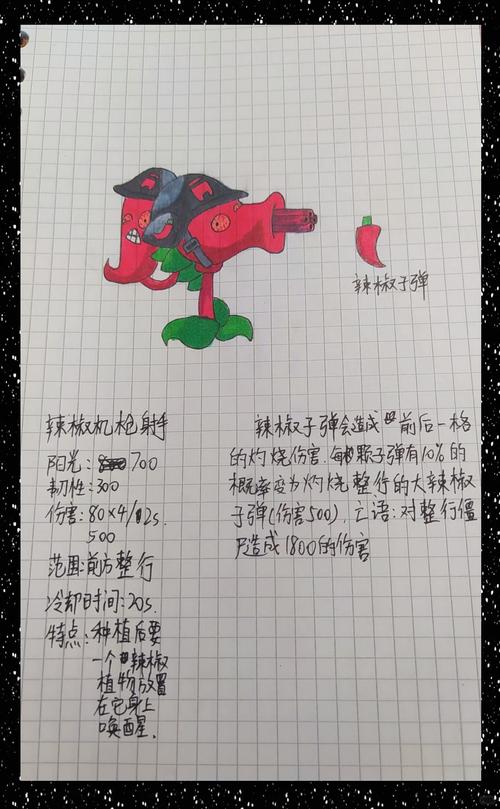 辣椒子弹
辣椒机枪射手
阳光:700
韧性:300
伤害:80×4/2s.
500
范围:前方整行
冷却时间:20s.
特点:种植后要
一个辣椒
植物放置
在它身上
唤醒.
辣椒子弹会造成前后一格
的灼烧伤害.每颗子弹有10%的
概率变为灼烧整行的大辣椒
子弹(伤害500).亡语:对整行僵
尸造成1800的伤害